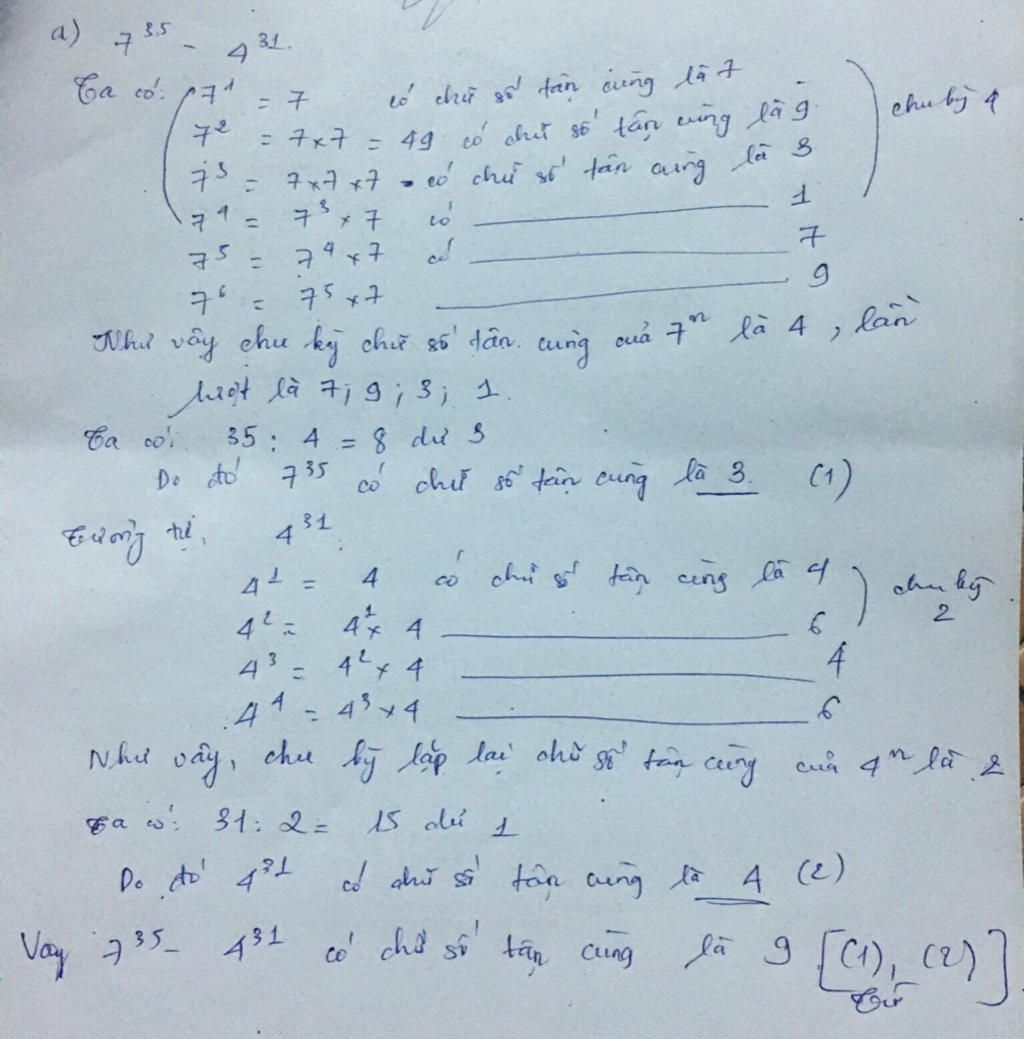 a) 7³⁵ - 4³¹.
Ta có: 7¹ = 7 có chữ số tận cùng là 7
7² = 7x7 = 49 có chữ số tận cùng là 9. chu kỳ 4
7³ = 7x7x7 - có chữ số tận cùng là 3
7⁴ = 7³ x 7 có ______ 1
7⁵ = 7⁴ x 7 có ______ 7
7⁶ = 7⁵ x 7 ______ 9
Như vậy chu kỳ chữ số tận cùng của 7ⁿ là 4, lần
lượt là 7; 9; 3; 1.
Ta có: 35 : 4 = 8 dư 3
Do đó 7³⁵ có chữ số tận cùng là 3. (1)
Tương tự, 4³¹.
4¹ = 4 có chữ số tận cùng là 4 chu kỳ
4² = 4¹ x 4 ______ 6 2
4³ = 4² x 4 ______ 4
4⁴ = 4³ x 4 ______ 6
Như vậy, chu kỳ lặp lại chữ số tận cùng của 4ⁿ là 2
Ta có: 31 : 2 = 15 dư 1
Do đó 4³¹ có chữ số tận cùng là 4 (2)
Vậy 7³⁵ - 4³¹ có chữ số tận cùng là 9 [(1), (2)]
Từ